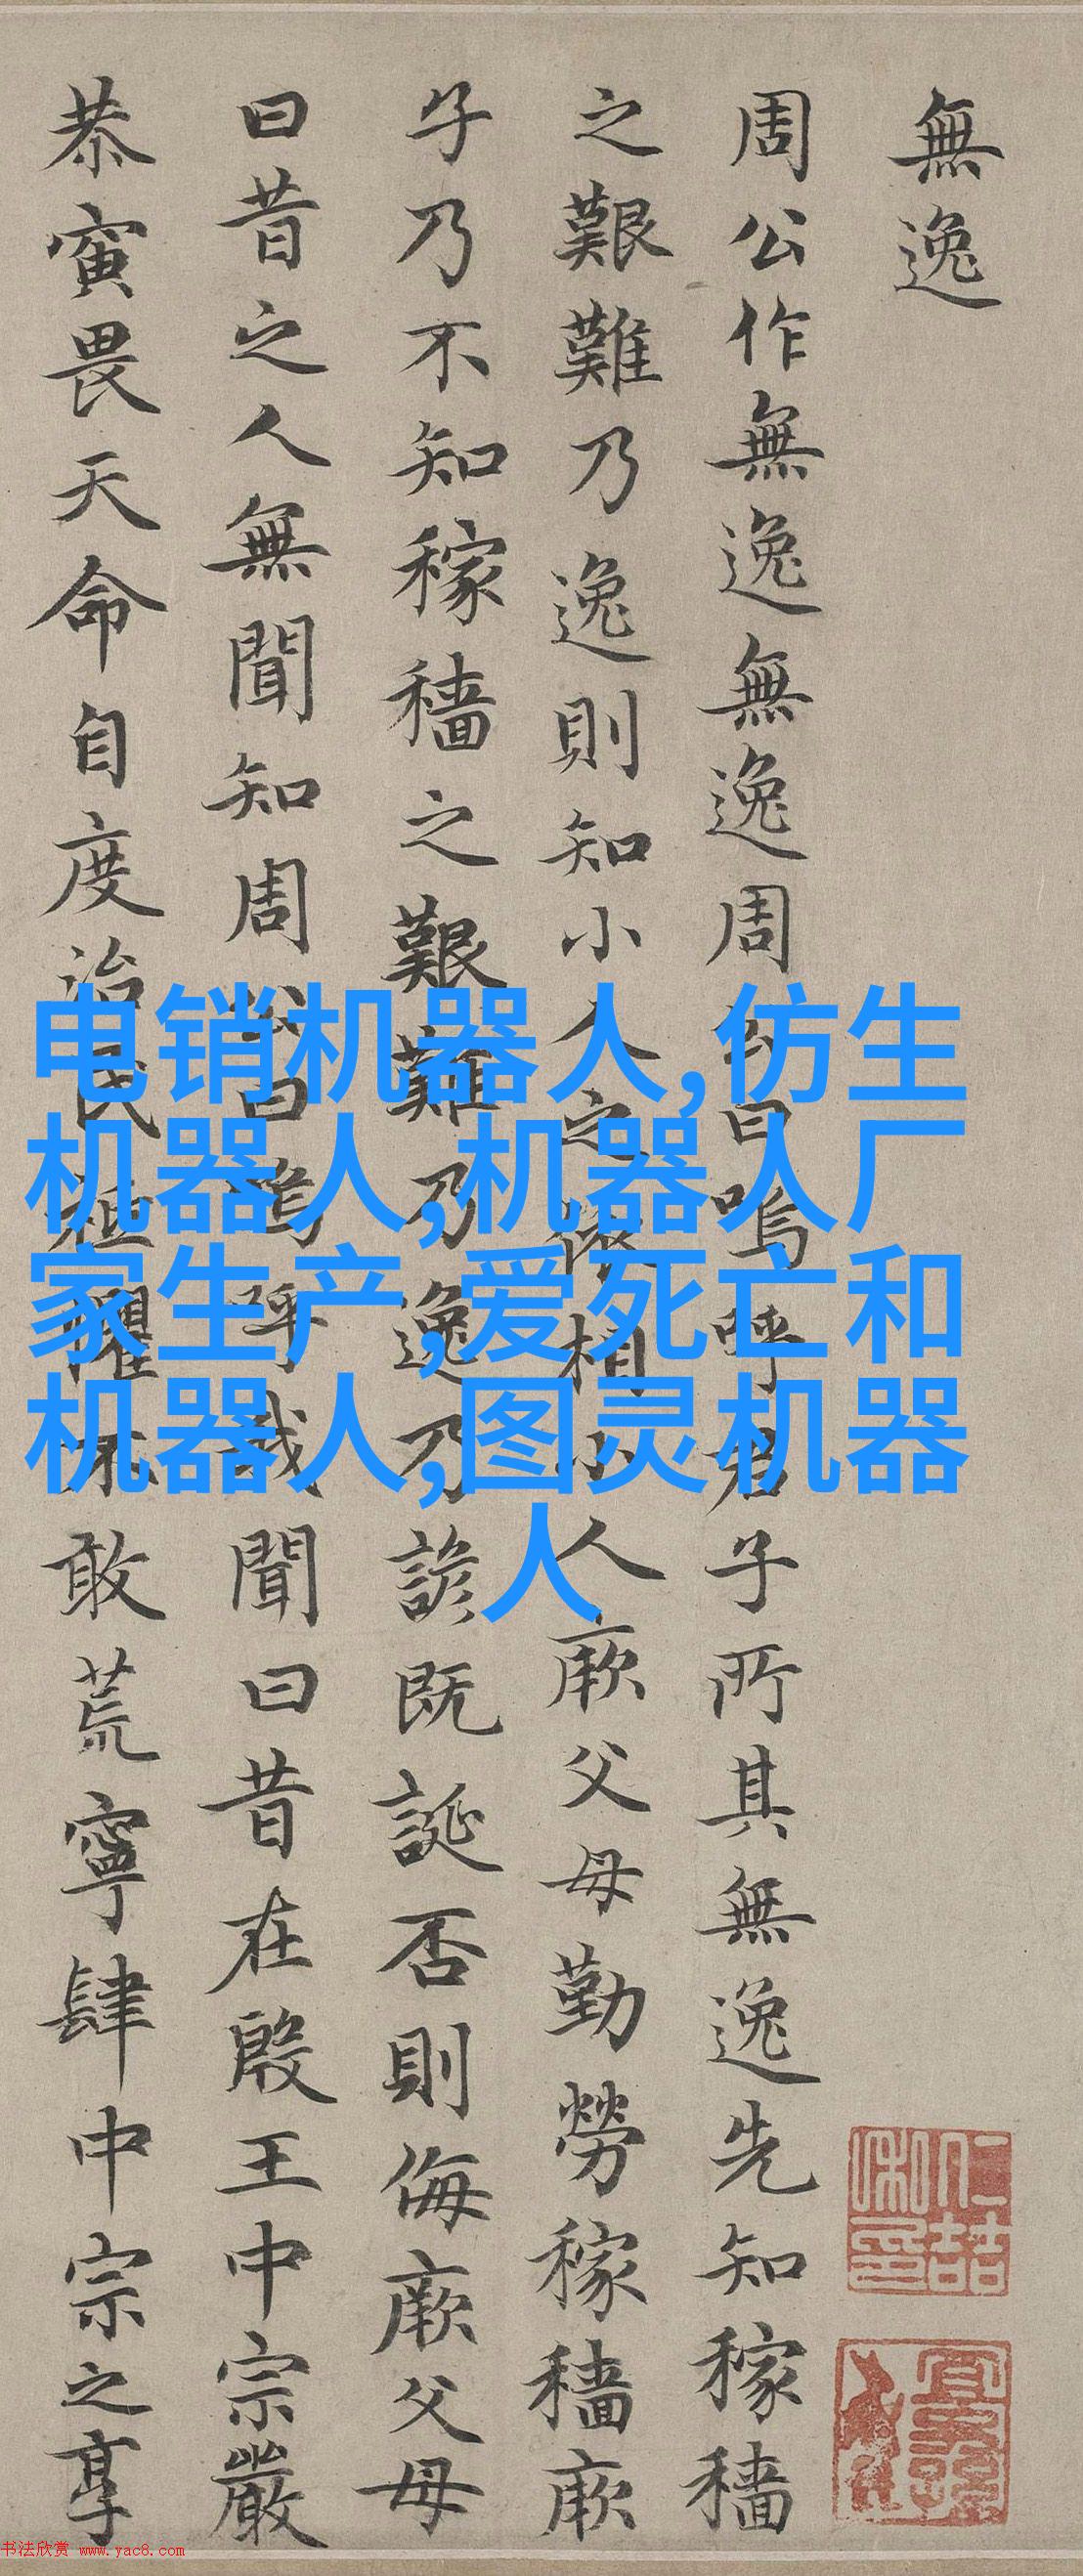 無逸
周公作無逸無逸周公曰嗚呼君子所其無逸先知稼穡
之艱難乃逸則知小人之依相小人厥父母勤勞稼穡厥
子乃不知稼穡之艱難乃逸乃諺既誕否則侮厥父母
曰昔之人無聞知周公曰嗚呼我聞曰昔在殷王中宗嚴
恭寅畏天命自度治民祗懼不敢荒寧肆中宗之享
电销机器人,仿生
机器人,机器人厂
家生产,爱死亡和
机器人,图灵机器
人
书法欣赏 www.yac8.com